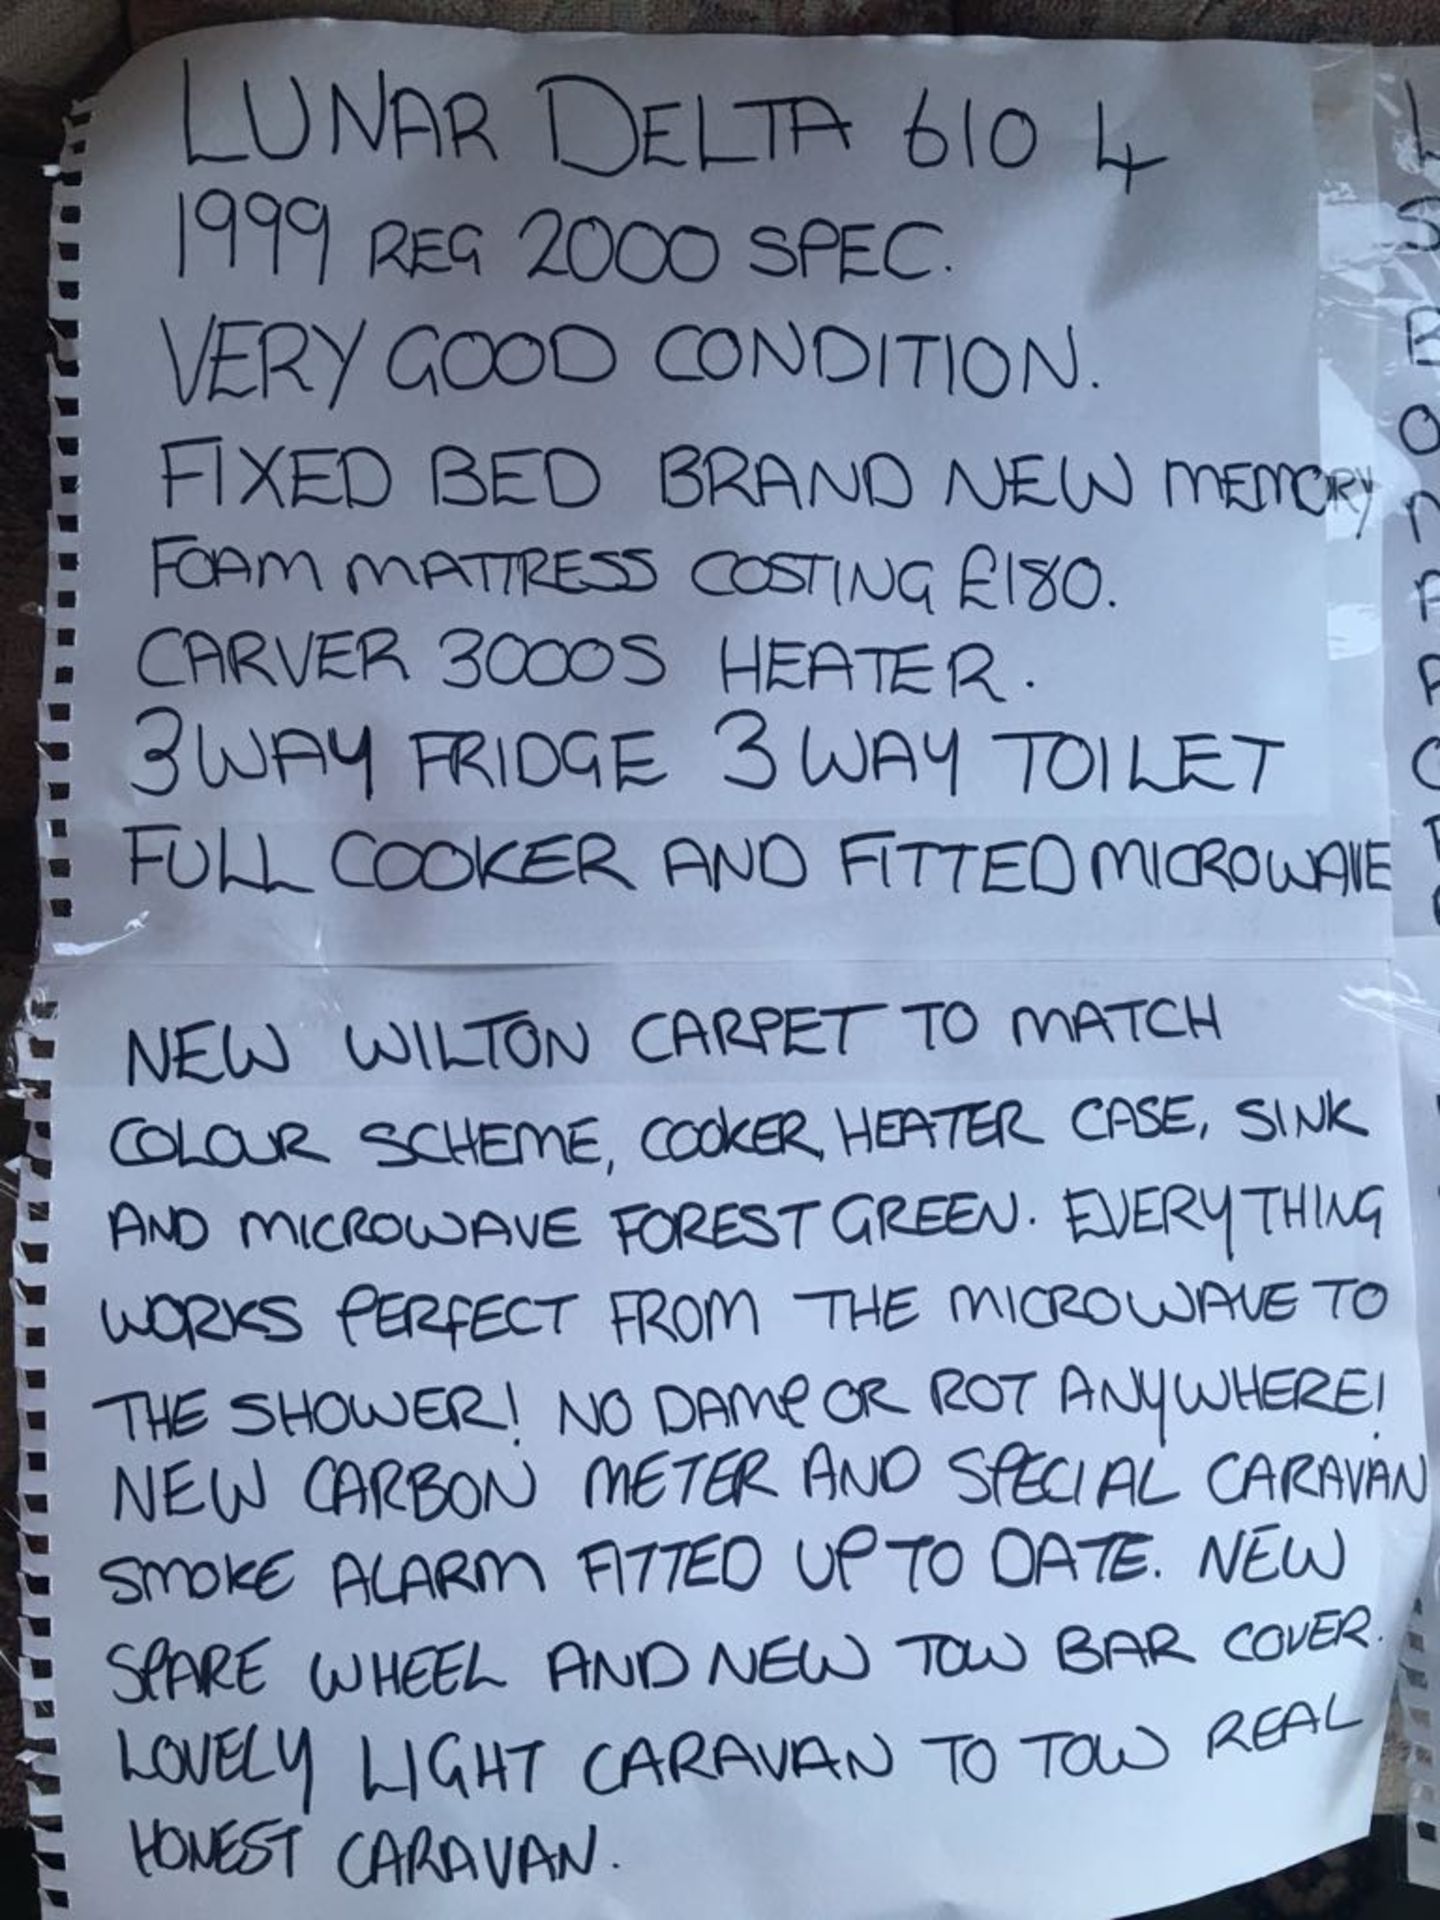 LUNAR DELTA 610 4
1999 REG 2000 SPEC.
VERY GOOD CONDITION.
FIXED BED BRAND NEW MEMORY
FOAM MATTRESS COSTING £180.
CARVER 3000S HEATER.
3 WAY FRIDGE 3 WAY TOILET
FULL COOKER AND FITTED MICROWAVE
NEW WILTON CARPET TO MATCH
COLOUR SCHEME, COOKER, HEATER CASE, SINK
AND MICROWAVE FOREST GREEN. EVERYTHING
WORKS PERFECT FROM THE MICROWAVE TO
THE SHOWER! NO DAMP OR ROT ANYWHERE!
NEW CARBON METER AND SPECIAL CARAVAN
SMOKE ALARM FITTED UP TO DATE. NEW
SPARE WHEEL AND NEW TOW BAR COVER.
LOVELY LIGHT CARAVAN TO TOW REAL
HONEST CARAVAN.